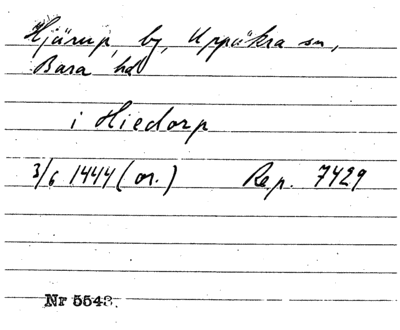 Hjärup, by, Uppåkra sn,
Bara hd
i Hiedorp
3/6 1444 (or.) Rep. 7429
Nr 5543.